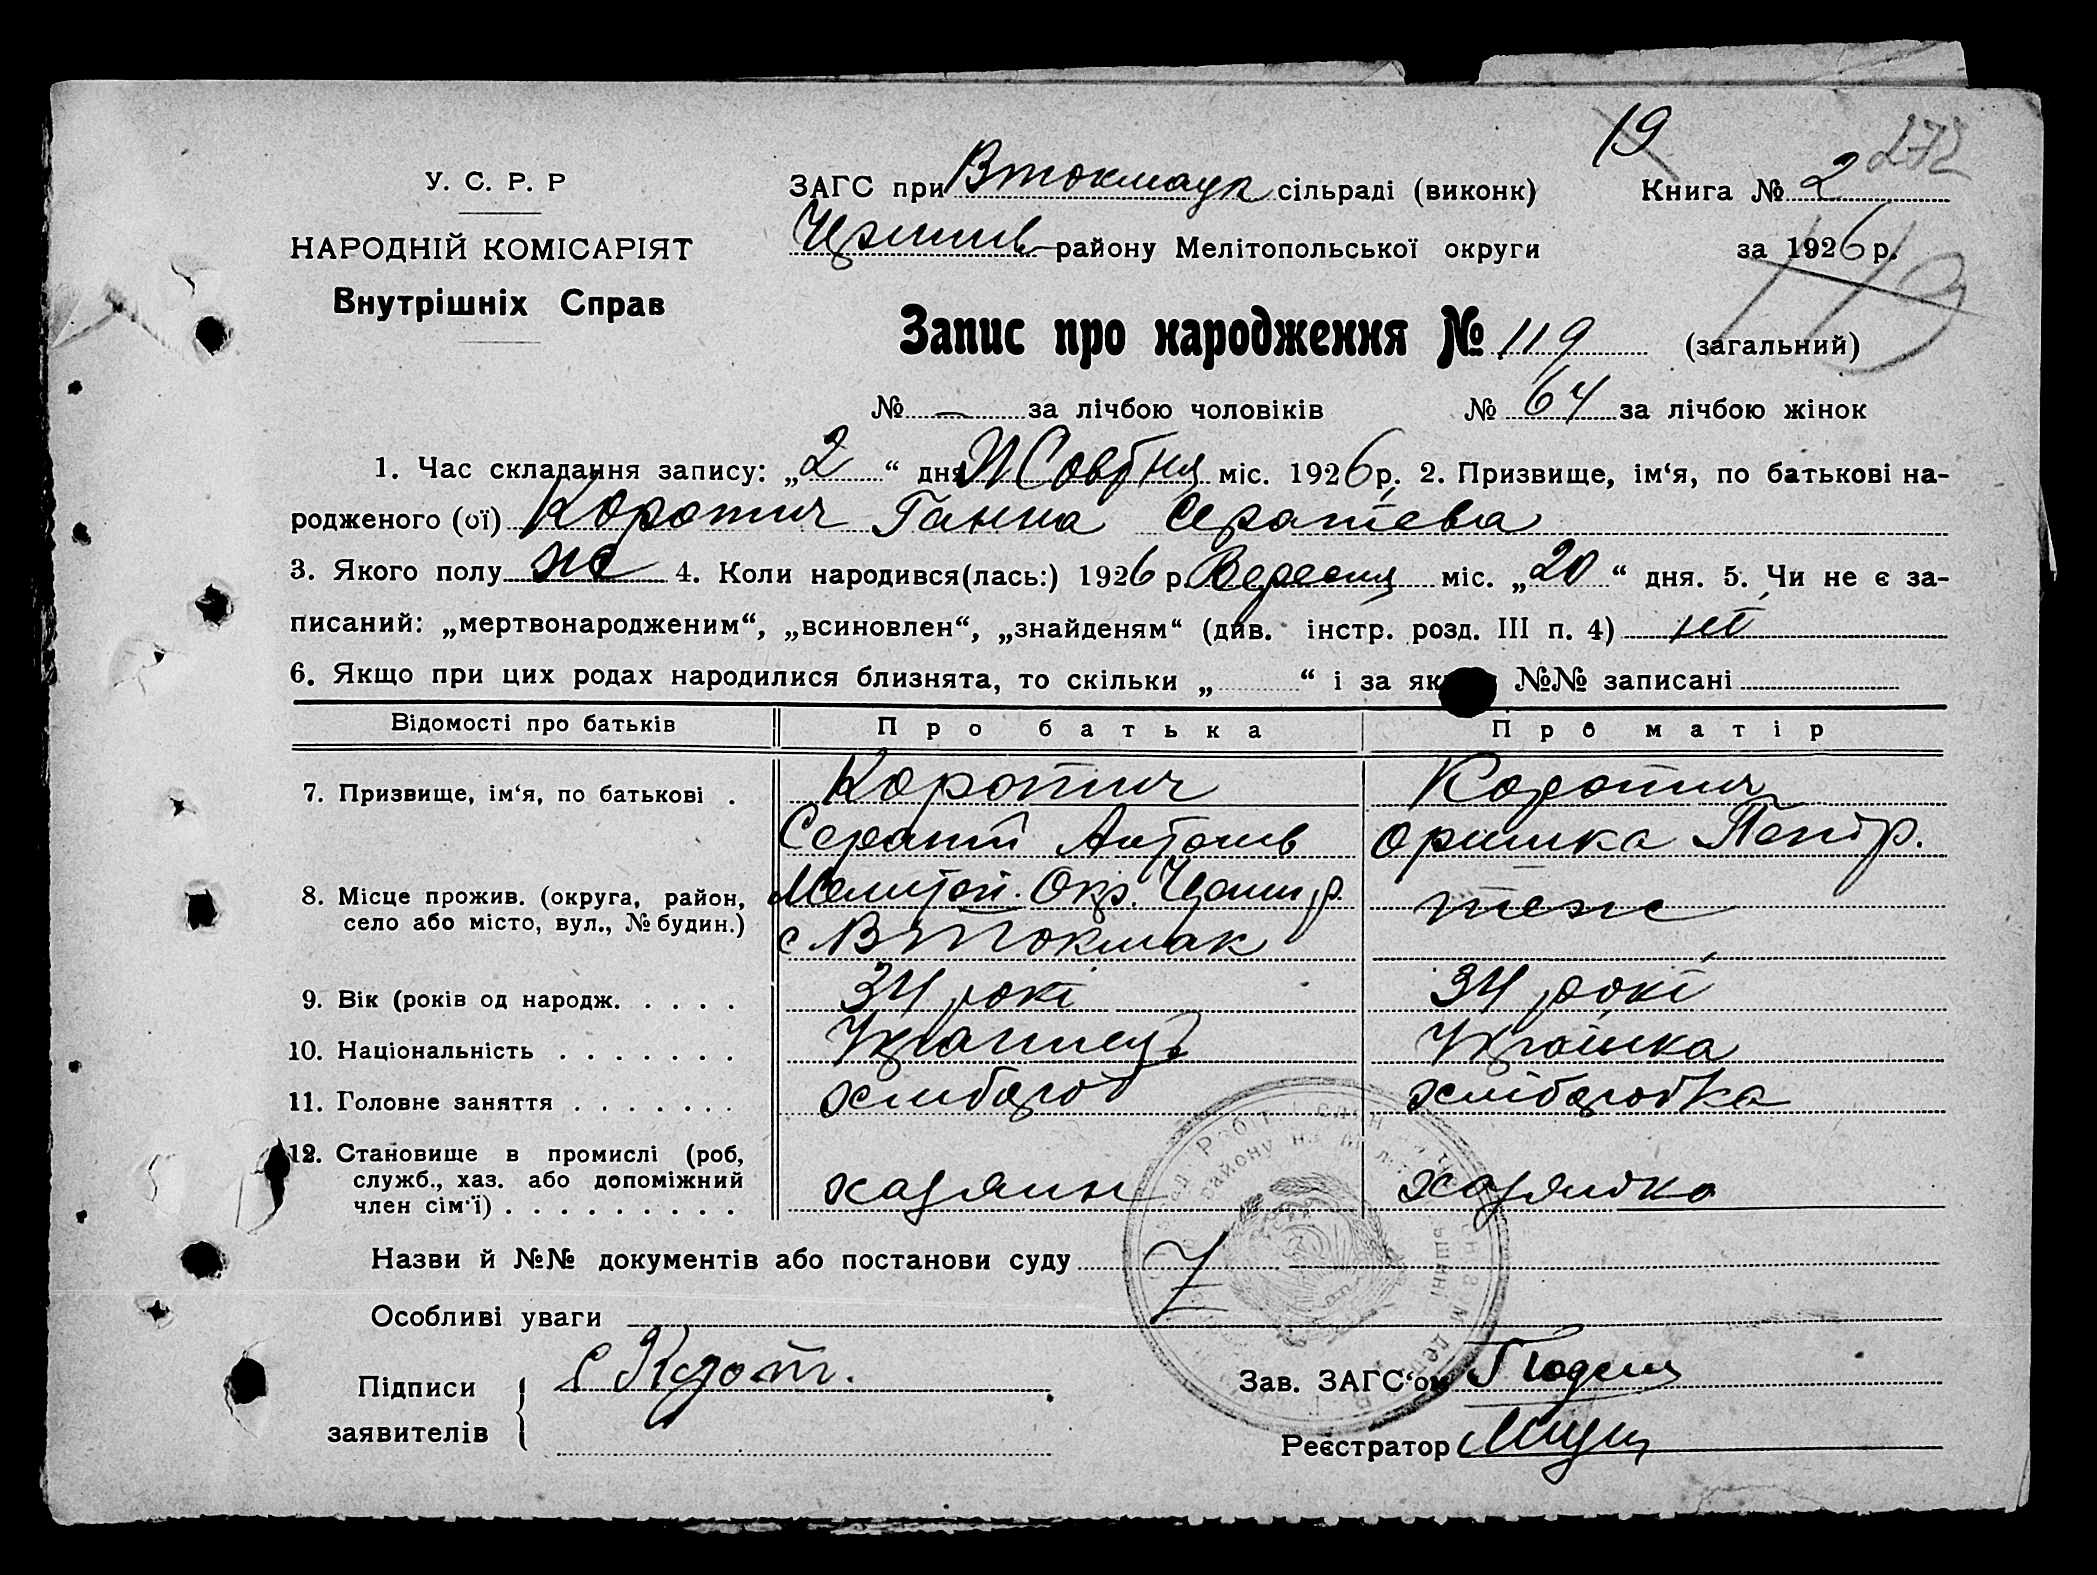 19
272
У. С. Р. Р
ЗАГС при Втокмацк сільраді (виконк) Книга № 2
НАРОДНІЙ КОМІСАРІЯТ
району Мелітопольської округи за 1926 р.
119
Внутрішніх Справ
Запис про народження № 119 (загальний)
№ — за лічбою чоловіків № 64 за лічбою жінок
1. Час складання запису: „2“ дня Жовтня міс. 1926 р. 2. Призвище, ім‘я, по батькові на-
родженого (ої) Коротич Ганна
3. Якого полу ж 4. Коли народився(лась:) 1926 р. Вересня міс. „20“ дня. 5. Чи не є за-
писаний: „мертвонародженим“, „всиновлен“, „знайденям“ (див. інстр. розд. III п. 4) ні
6. Якщо при цих родах народилися близнята, то скільки „ “ і за як №№ записані
Відомості про батьків Про батька Про матір
7. Призвище, ім‘я, по батькові . Коротич Коротич
Антонів Оришка Петр.
8. Місце прожив. (округа, район, Мелитоп. Окр. теж
село або місто, вул., № будин.) с Втокмак
9. Вік (років од народж. . . . . 34 рокі 34 рокі
10. Національність . . . . . . . Українець Українка
11. Головне заняття . . . . . . . хлибороб хліборобка
12. Становище в промислі (роб,
служб., хаз. або допоміжний хазяин хазяйка
член сім‘ї) . . . . . . . . .
Назви й №№ документів або постанови суду
Особливі уваги
Підписи
заявителів
С Корот.
Зав. ЗАГС‘ом
Реєстратор